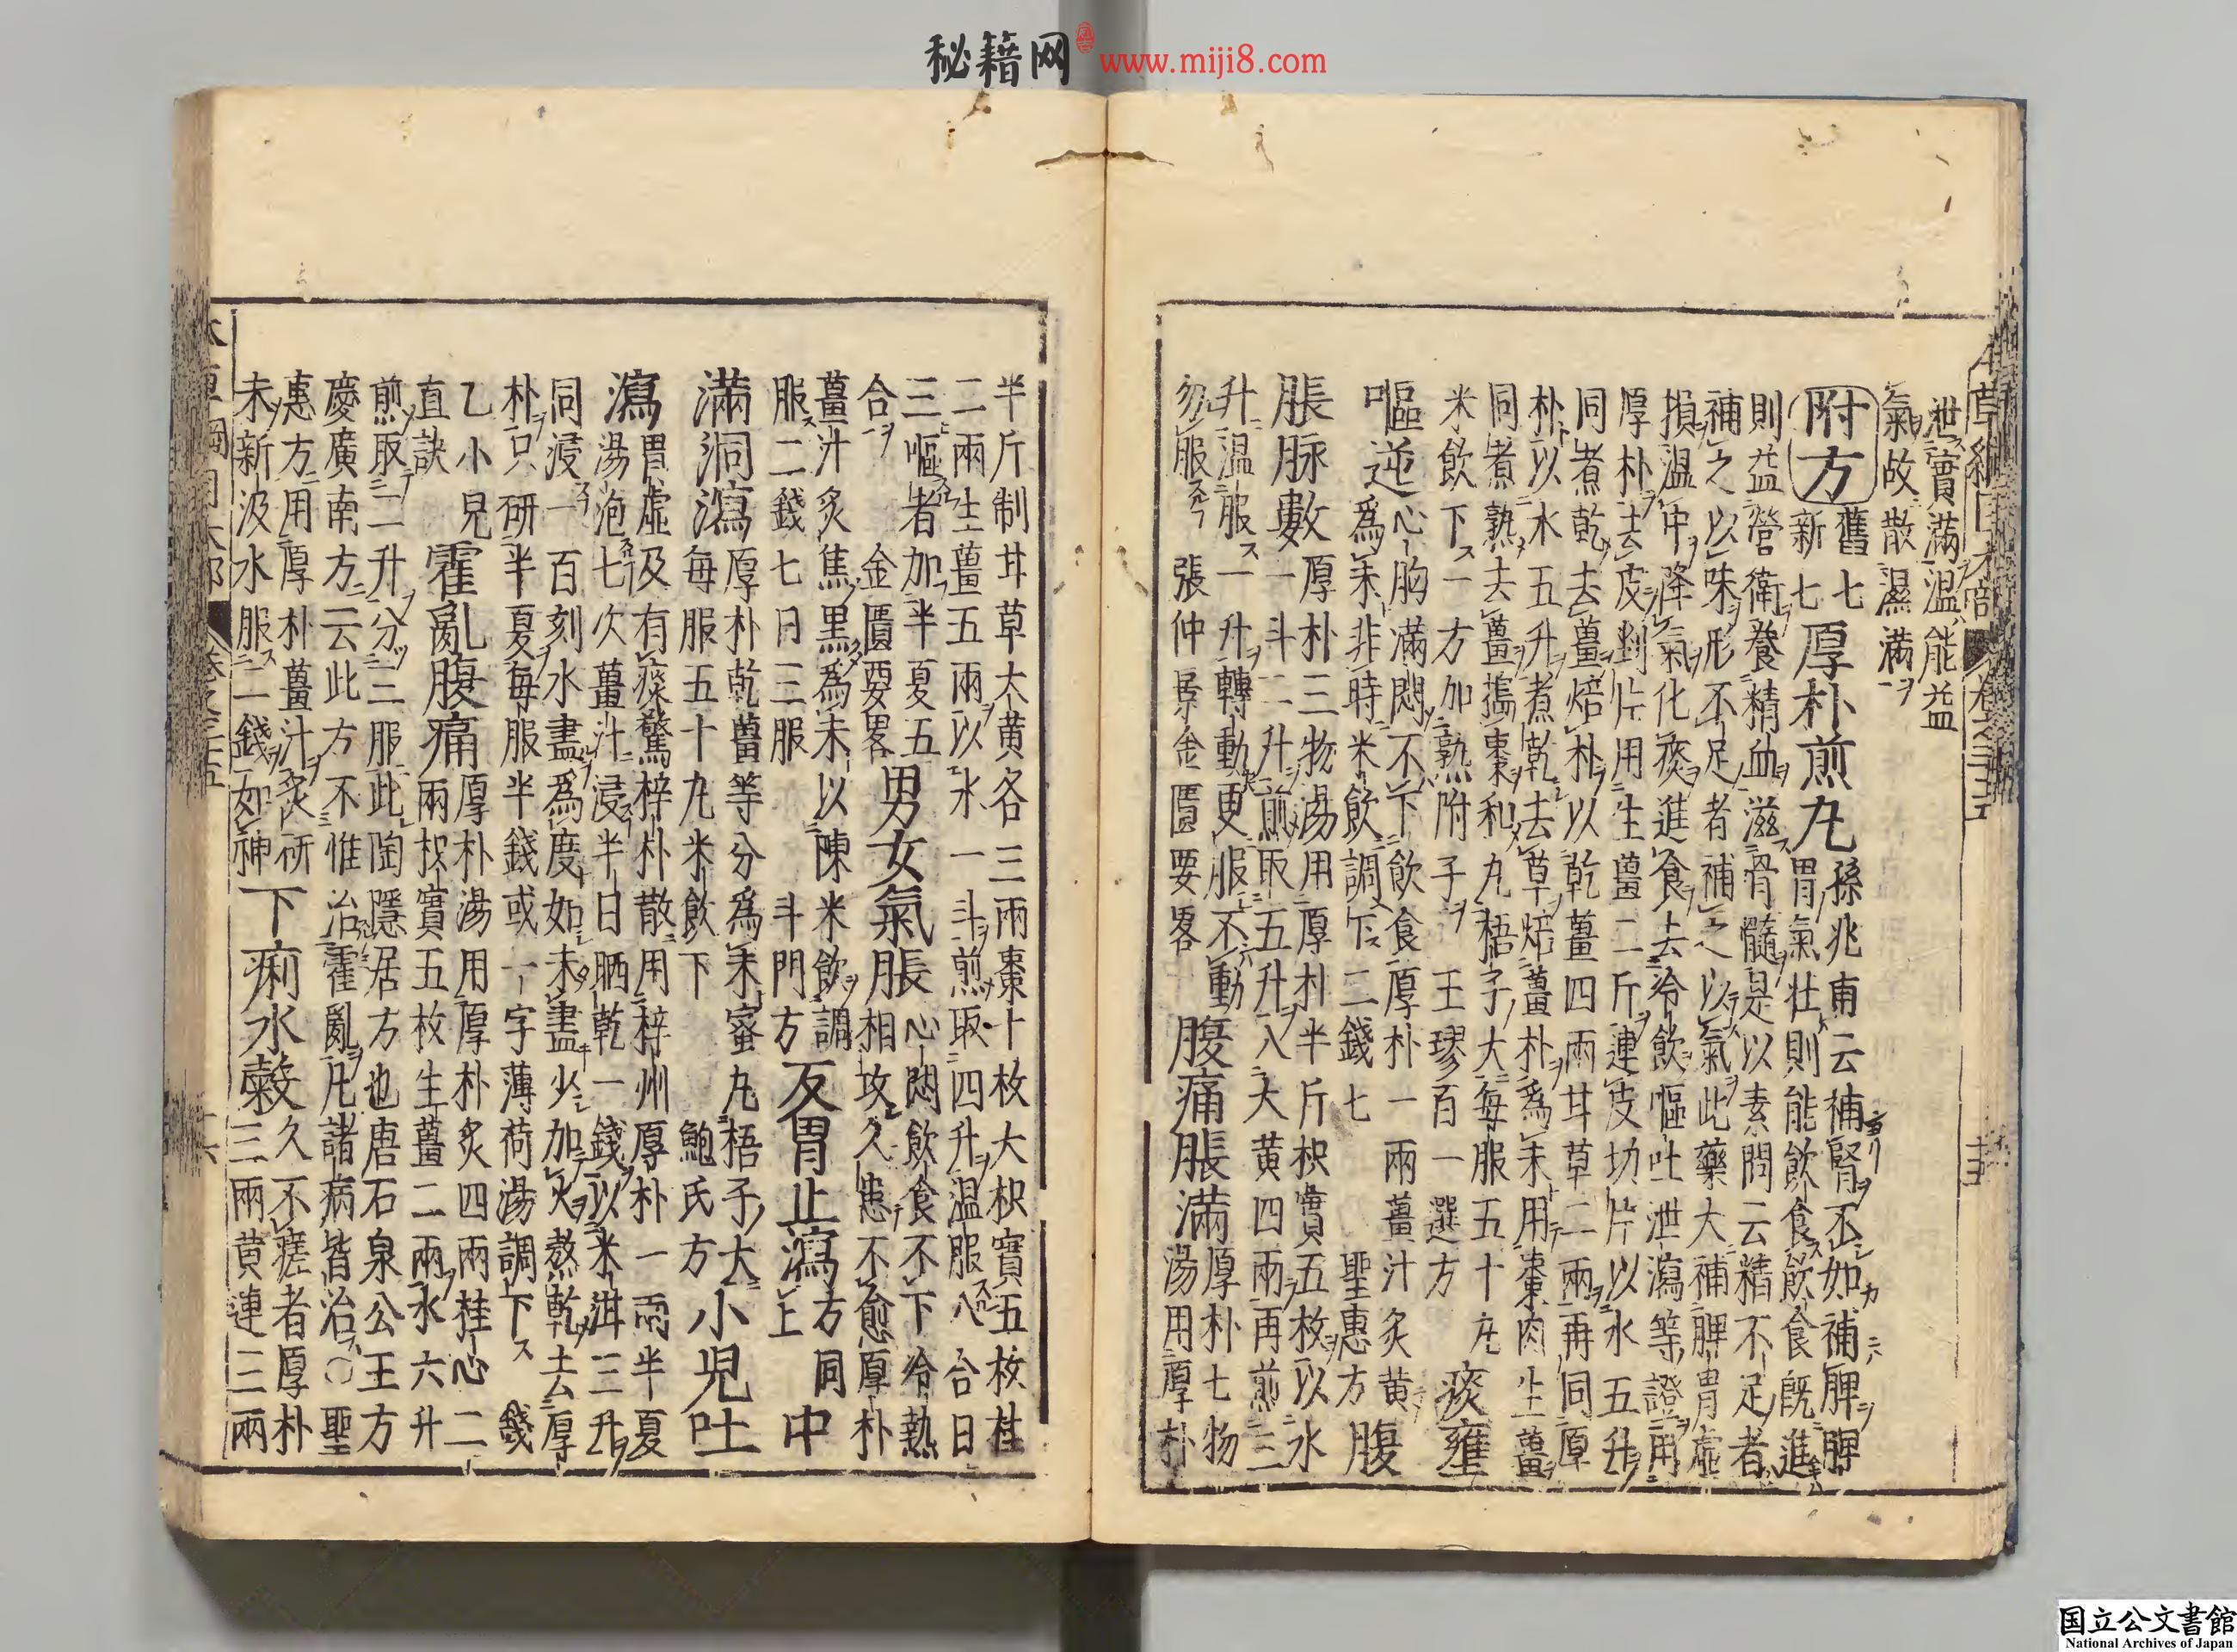 秘籍网 www.miji8.com
本草綱目木部 卷之三十五 十五
泄實滿温能益
氣故散濕滿
附方 舊七新七 厚朴煎丸 孫兆甫云補腎不如補脾脾
胃氣壯則能飲食飲食既進
則益營衛養精血滋骨髓是以素問云精不足者
補之以味形不足者補之以氣此藥大補脾胃虚
損温中降氣化痰進食去冷飲嘔吐泄瀉等證用
厚朴去皮剉片用生薑二斤連皮切片以水五升
同煮乾去薑焙朴以乾薑四兩甘草二兩再同厚
朴以水五升煮乾去草焙薑朴爲末用棗肉生薑
同煮熟去薑搗棗和丸梧子大每服五十丸
米飲下一方加熟附子 王璆百一選方 痰壅
嘔逆 心胸滿悶不下飲食厚朴一兩薑汁炙黄
爲末非時米飲調下二錢七 聖惠方 腹
脹脉數 厚朴三物湯用厚朴半斤枳實五枚以水
一斗二升煎取五升入大黄四兩再煎三
升温服一升轉動更服不動
勿服 張仲景金匱要畧 腹痛脹滿 厚朴七物
湯用厚朴
半斤制甘草大黄各三兩棗十枚大枳實五枚桂
二兩生薑五兩以水一斗煎取四升温服八合日
三嘔者加半夏五
合 金匱要畧 男女氣脹 心悶飲食不下冷熱
相攻久患不愈厚朴
薑汁炙焦黒爲末以陳米飲調
服二錢七日三服 斗門方 反胃止瀉 方同上 中
滿洞瀉 厚朴乾薑等分爲末蜜丸梧子大
每服五十丸米飲下 鮑氏方 小兒吐
瀉 胃虚及有痰驚梓朴散用梓州厚朴一兩半夏
湯泡七次薑汁浸半日晒乾一錢以米泔三升
同浸一百刻水盡爲度如未盡少加火熬乾去厚
朴只研半夏每服半錢或一字薄荷湯調下 錢
乙小兒
直訣 霍亂腹痛 厚朴湯用厚朴炙四兩桂心二
兩枳實五枚生薑二兩水六升
煎取二升分三服此陶隱居方也唐石泉公王方
慶廣南方云此方不惟治霍亂凡諸病皆治○聖
惠方用厚朴薑汁炙研
末新汲水服二錢如神 下痢水穀 久不瘥者厚朴
三兩黄連三兩
本草綱目木部 卷之三十五 十六
国立公文書館
National Archives of Japan